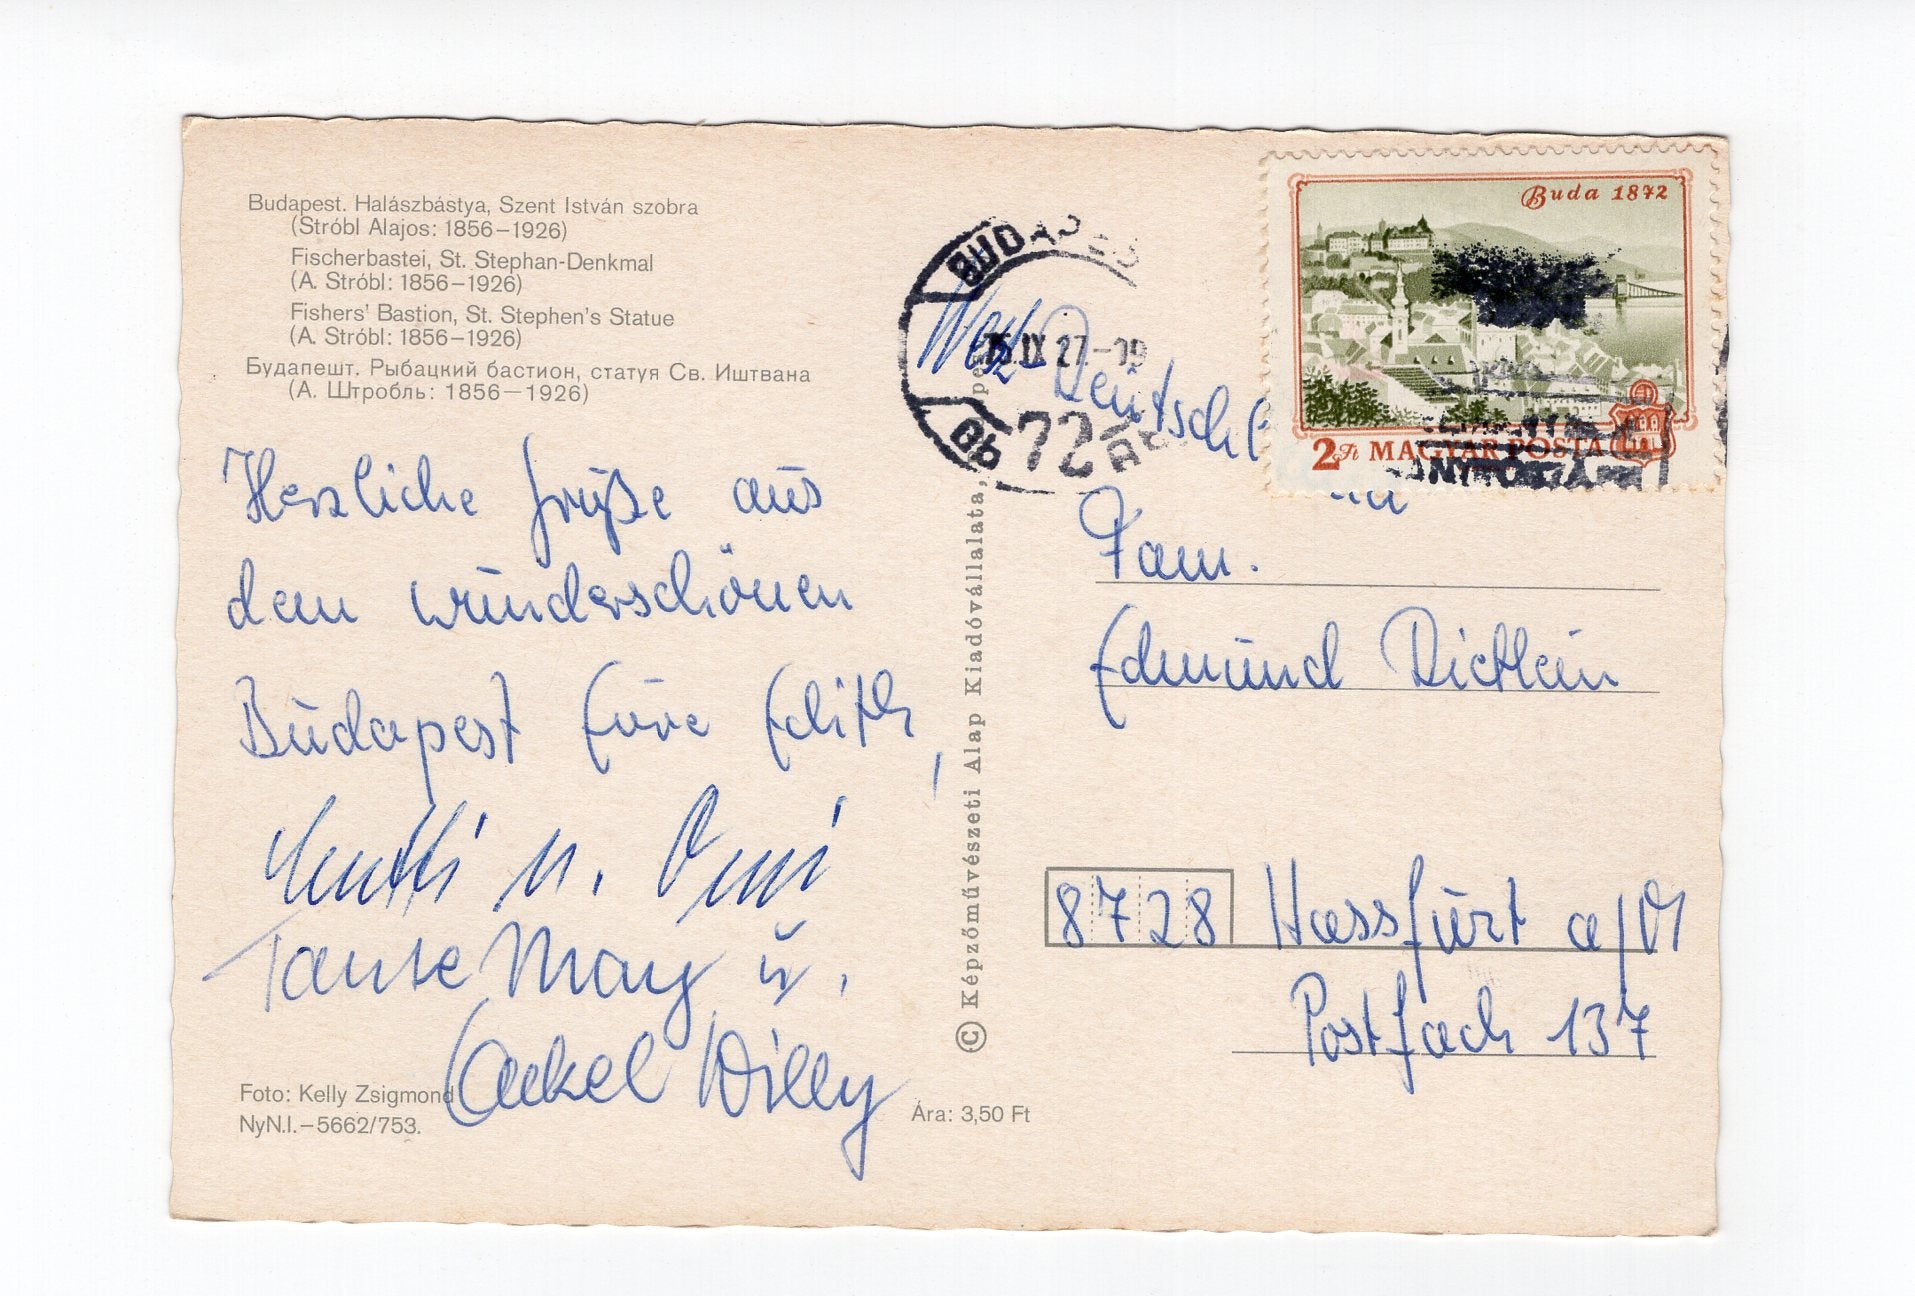 Budapest. Halászbástya, Szent István szobra
(Stróbl Alajos: 1856–1926)
Fischerbastei, St. Stephan-Denkmal
(A. Stróbl: 1856–1926)
Fishers' Bastion, St. Stephen's Statue
(A. Stróbl: 1856–1926)
Будапешт. Рыбацкий бастион, статуя Св. Иштвана
(А. Штробль: 1856–1926)
Herzliche Grüße aus
dem wunderschönen
Budapest Eure Edith,
u. Omi
Tante May u.
Onkel Willy
Foto: Kelly Zsigmond
NyN.I.–5662/753.
Ára: 3,50 Ft
© Képzőművészeti Alap Kiadóvállalata,
BUDAPES
75.IX 27.–19
72
Buda 1872
2 Ft MAGYAR POSTA
West-
Deutschl
Fam.
Edmund Dietlein
8728 Hassfurt a/M
Postfach 137